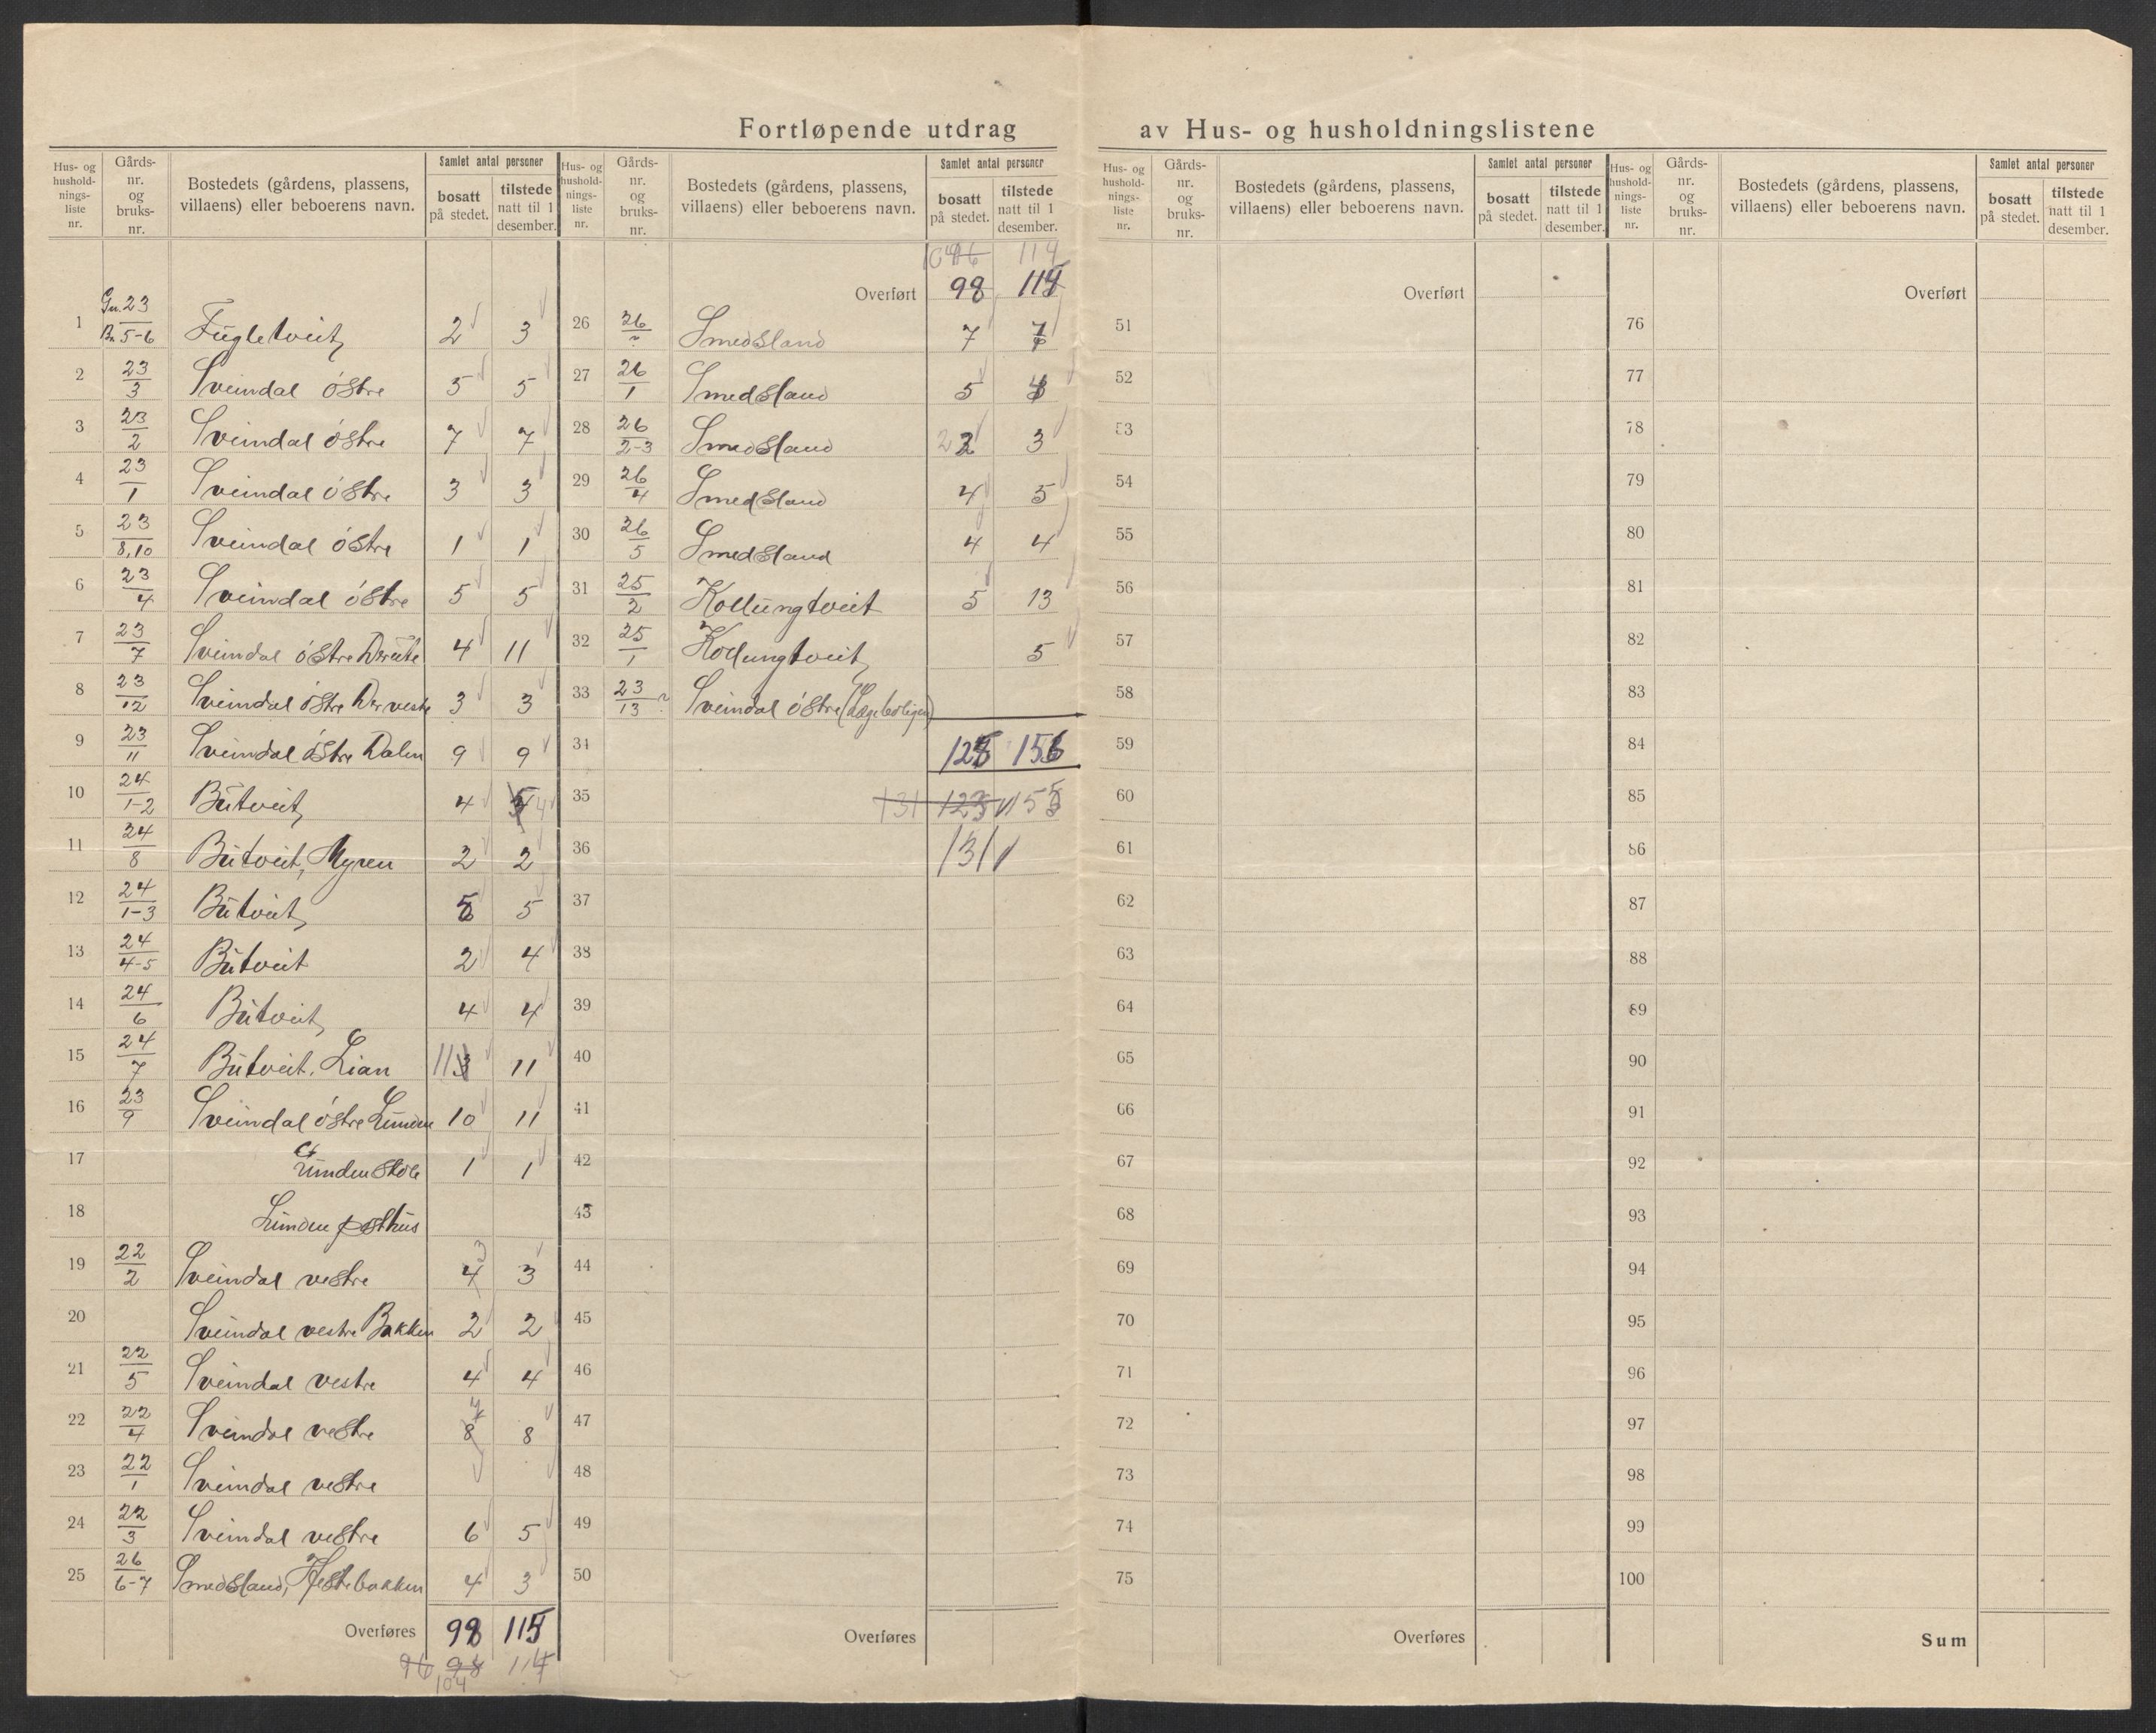 Fortløpende utdrag av Hus- og husholdningslistene
Hus- og husholdnings-liste nr. | Gårds-nr. og bruks-nr. | Bostedets (gårdens, plassens, villaens) eller beboerens navn. | Samlet antal personer bosatt på stedet. | tilstede natt til 1 desember.
1 | Gn. 23 / Bn. 5-6 | Fugletveit | 2 | 3
2 | 23/3 | Sveindal östre | 5 | 5
3 | 23/2 | Sveindal östre | 7 | 7
4 | 23/1 | Sveindal östre | 3 | 3
5 | 23/8,10 | Sveindal östre | 1 | 1
6 | 23/4 | Sveindal östre | 5 | 5
7 | 23/7 | Sveindal östre | 4 | 11
8 | 23/12 | Sveindal östre | 3 | 3
9 | 23/11 | Sveindal östre Dalen | 9 | 9
10 | 24/1-2 | Butveit | 4 | 4
11 | 24/8 | Butveit, Myren | 2 | 2
12 | 24/1-3 | Butveit | 5 | 5
13 | 24/4-5 | Butveit | 2 | 4
14 | 24/6 | Butveit | 4 | 4
15 | 24/7 | Butveit, Lian | 11 | 11
16 | 23/9 | Sveindal östre Lunden | 10 | 11
17 | Lunden skole | 1 | 1
18 | Lunden posthus
19 | 22/2 | Sveindal vestre | 4 3 | 3
20 | Sveindal vestre Bakken | 2 | 2
21 | 22/5 | Sveindal vestre | 4 | 4
22 | 22/4 | Sveindal vestre | 8 | 8
23 | 22/1 | Sveindal vestre
24 | 22/3 | Sveindal vestre | 6 | 5
25 | 26/6-7 | Smedsland, Hestebakken | 4 | 3
Overføres | 98 | 115
96 98 114
104
Hus- og husholdnings-liste nr. | Gårds-nr. og bruks-nr. | Bostedets (gårdens, plassens, villaens) eller beboerens navn. | Samlet antal personer bosatt på stedet. | tilstede natt til 1 desember.
104 96 114
Overført | 98 | 114
26 | 26/? | Smedsland | 7 | 7
27 | 26/1 | Smedsland | 5 | 4
28 | 26/2-3 | Smedsland | 2 2 | 3
29 | 26/4 | Smedsland | 4 | 5
30 | 26/5 | Smedsland | 4 | 4
31 | 25/2 | Kollungtveit | 5 | 13
32 | 25/1 | Kollungtveit | 5
33 | 23/13 ? | Sveindal östre (Lægeboligen)
34 | 128 | 156
35 | 131 125 155
36 | 131
37
38
39
40
41
42
43
44
45
46
47
48
49
50
Overføres
Hus- og husholdnings-liste nr. | Gårds-nr. og bruks-nr. | Bostedets (gårdens, plassens, villaens) eller beboerens navn. | Samlet antal personer bosatt på stedet. | tilstede natt til 1 desember.
Overført
51
52
53
54
55
56
57
58
59
60
61
62
63
64
65
66
67
68
69
70
71
72
73
74
75
Overføres
Hus- og husholdnings-liste nr. | Gårds-nr. og bruks-nr. | Bostedets (gårdens, plassens, villaens) eller beboerens navn. | Samlet antal personer bosatt på stedet. | tilstede natt til 1 desember.
Overført
76
77
78
79
80
81
82
83
84
85
86
87
88
89
90
91
92
93
94
95
96
97
98
99
100
Sum